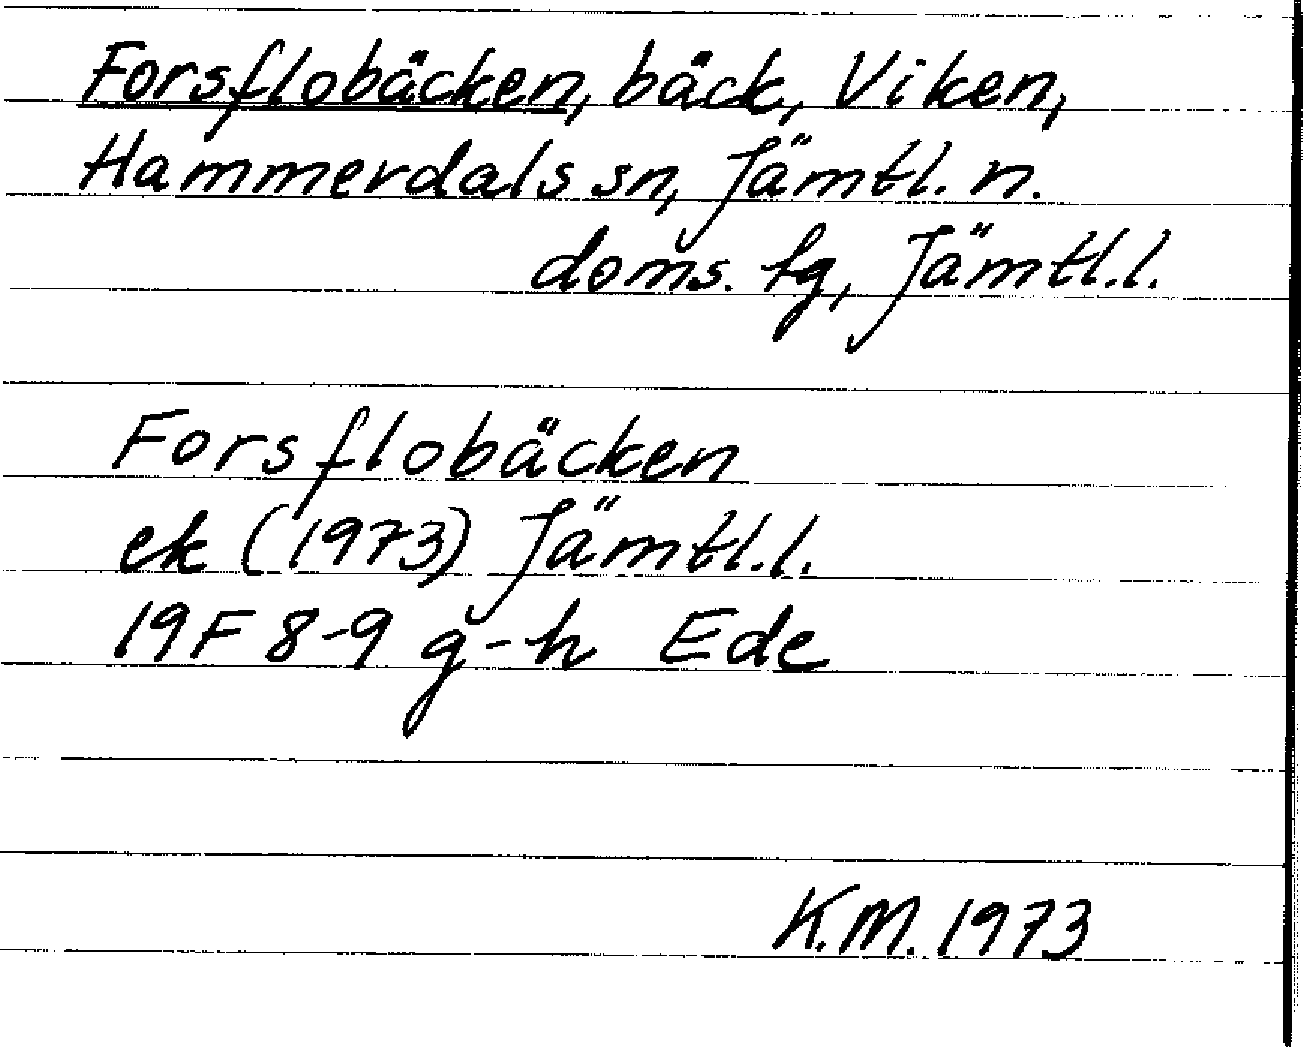 Forsflobäcken, bäck, Viken,
Hammerdals sn, Jämtl. n.
doms. fg, Jämtl.l.
Forsflobäcken
ek (1973) Jämtl.l.
19F 8-9 g-h Ede
K.M. 1973